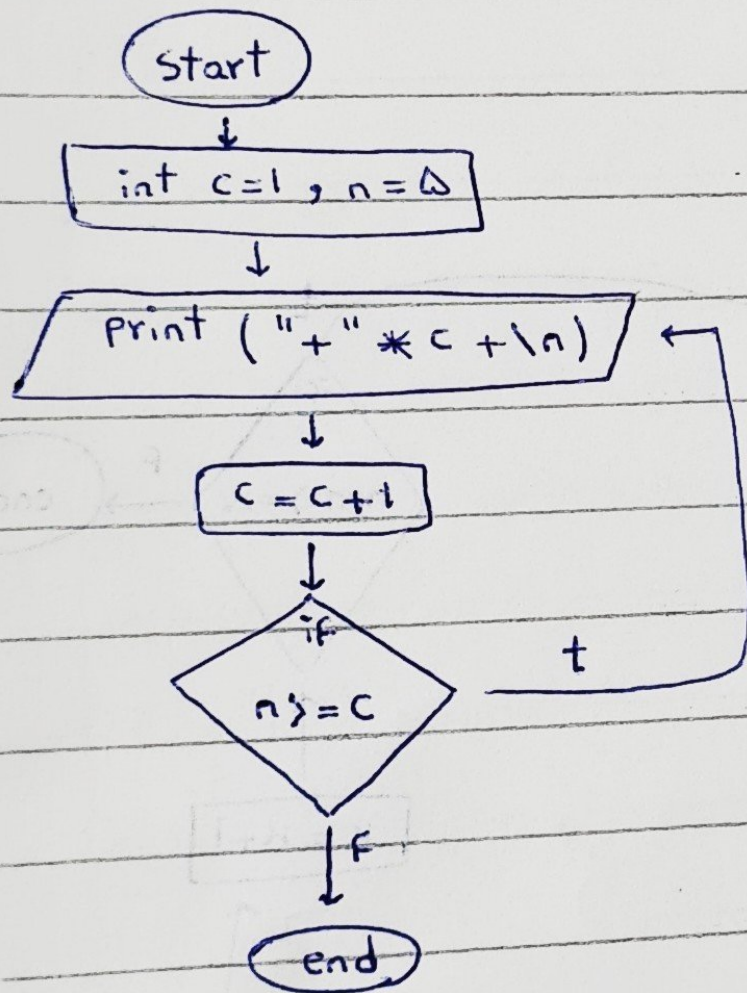 start
int c=1, n=۵
print ("+" * c +\n)
c = c + 1
if
n>=c
t
F
end